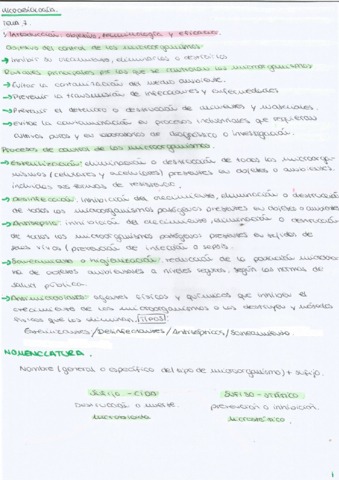 MICROBIOLOGÍA.
TEMA 7.
1. Introducción: objetivo, terminología y eficacia.
Objetivo del control de los microorganismos
→ Inhibir su crecimiento, eliminarlos o destruirlos
principales por los que se controlan los microorganismos
→ Evitar la contaminación del medio ambiente.
→ Prevenir la transmisión de infecciones y enfermedades
→ Prevenir el deterioro o destrucción de alimentos y materiales.
→ evitar la contaminación en procesos industriales que requieran
cultivos puros y en laboratorios de diagnóstico o investigación.
Procesos de control de los microorganismos.
→ Esterilización: eliminación o destrucción de todos los microorga-
nismos (celulares y acelulares) presentes en objetos o ambientes
incluidas sus formas de resistencia.
→ desinfección: inhibición del crecimiento, eliminación o destrucción
de todos los microorganismos patógenos presentes en objetos o ambientes
→ Antisepsia: inhibición del crecimiento, eliminación o destrucción
de todos los microorganismos patógenos presentes en tejidos de
seres vivos (prevención de infección o sepsis.
→ Saneamiento o higienización: reducción de la población microbia
na de objetos ambientales a niveles seguros, según las normas de
salud pública.
→ Antimicrobianos: agentes físicos y químicos que inhiben el
crecimiento de los microorganismos o los destruyen y métodos
físicos que los eliminan. TIPOS
Esterilizantes/Desinfectantes/Antisépticos/Saneamiento.
NOMENCLATURA.
Nombre (general o específico del tipo de microorganismo) + sufijo.
Sufijo - CIDA SUFIJO - STÁTICO
destrucción o muerte. prevención o inhibición.
Microbicida Microbiostático.
1